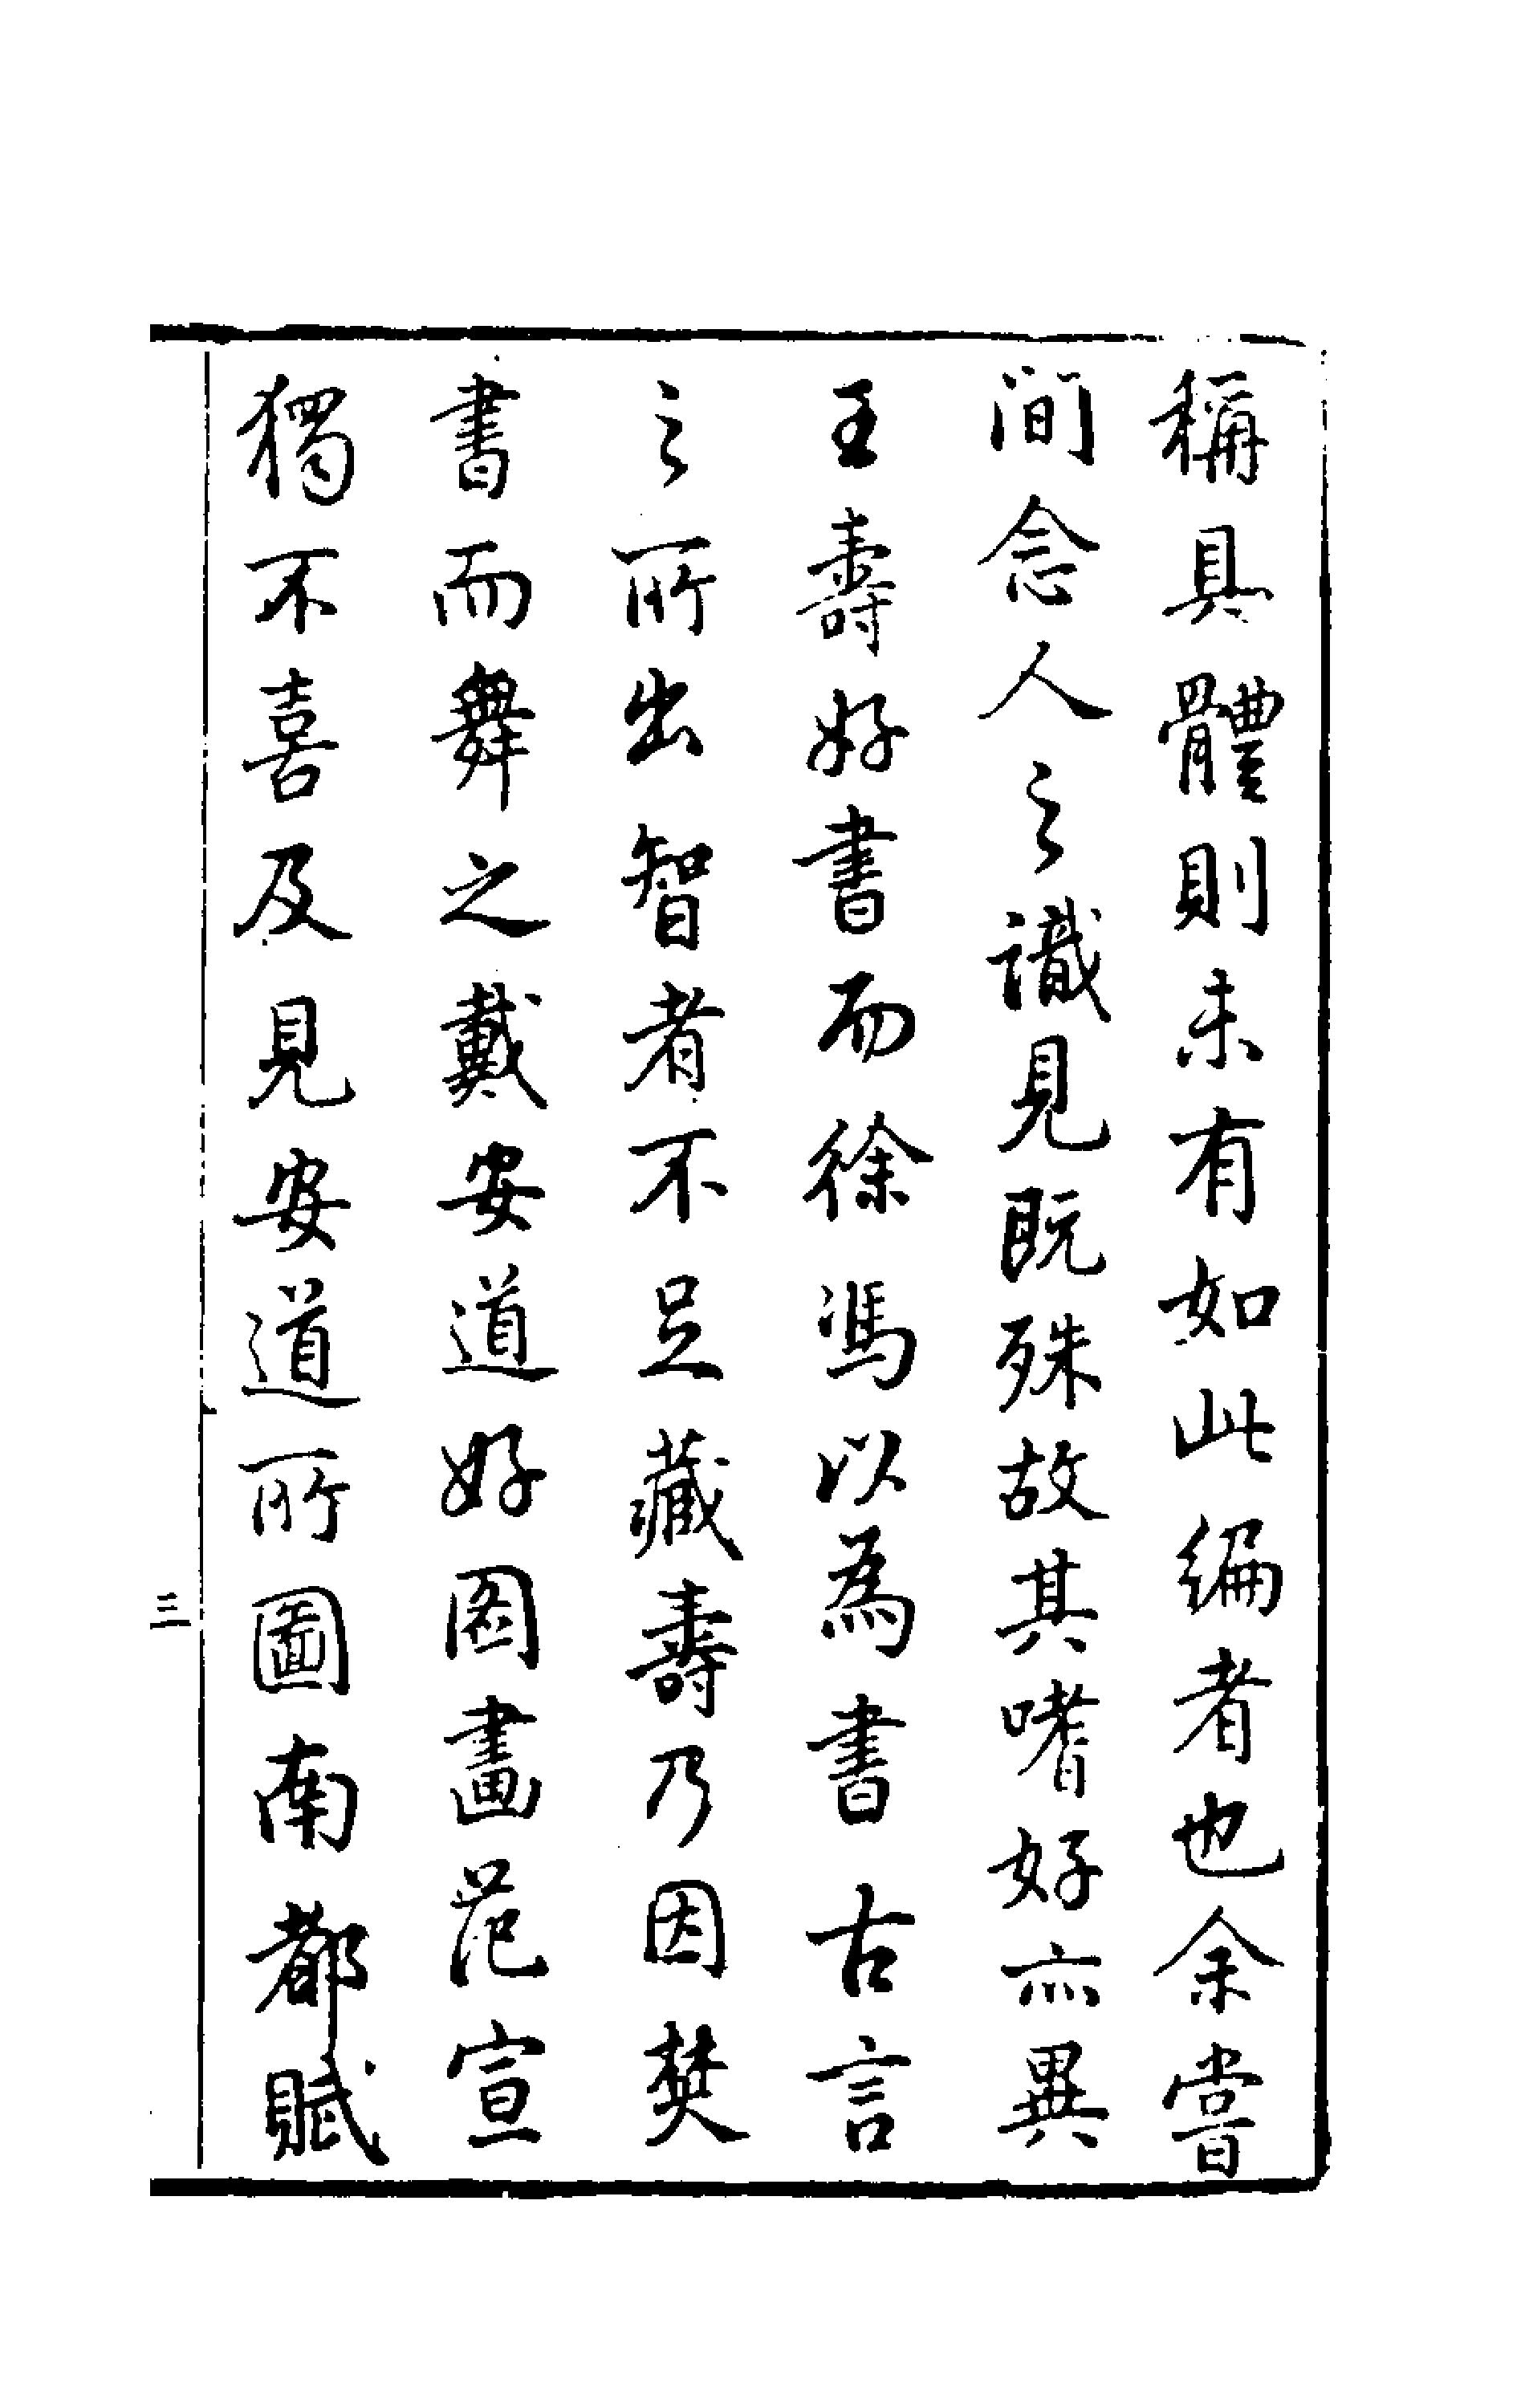 稱具體則未有如此編者也余嘗
間念人之識見既殊故其嗜好亦異
王壽好書而徐馮以為書古言
之所出智者不足藏壽乃因焚
書而舞之戴安道好圖畫范宣
獨不喜及見安道所圖南都賦
三